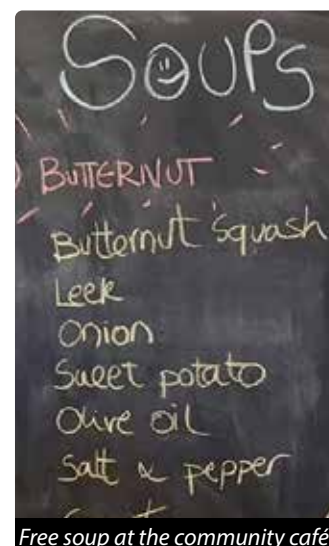 SOUPS
BUTTERNUT
Butternut Squash
Leek
Onion
Sweet potato
Olive oil
Salt & pepper
Free soup at the community café